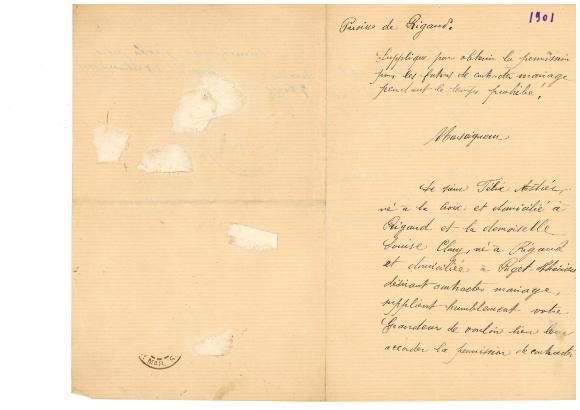 1901
Paroisse de Rigaud.
Supplique pour obtenir la permission
pour les futurs de contracter mariage
pendant le temps prohibé.
Monseigneur
Le sieur Félix
né à la Croix et domicilié à
Rigaud et la demoiselle
Louise Clary, né à Rigaud
et domiciliée à Puget-Théniers
désirant contracter mariage,
supplient humblement votre
Grandeur de vouloir bien leur
accorder la permission de contracter